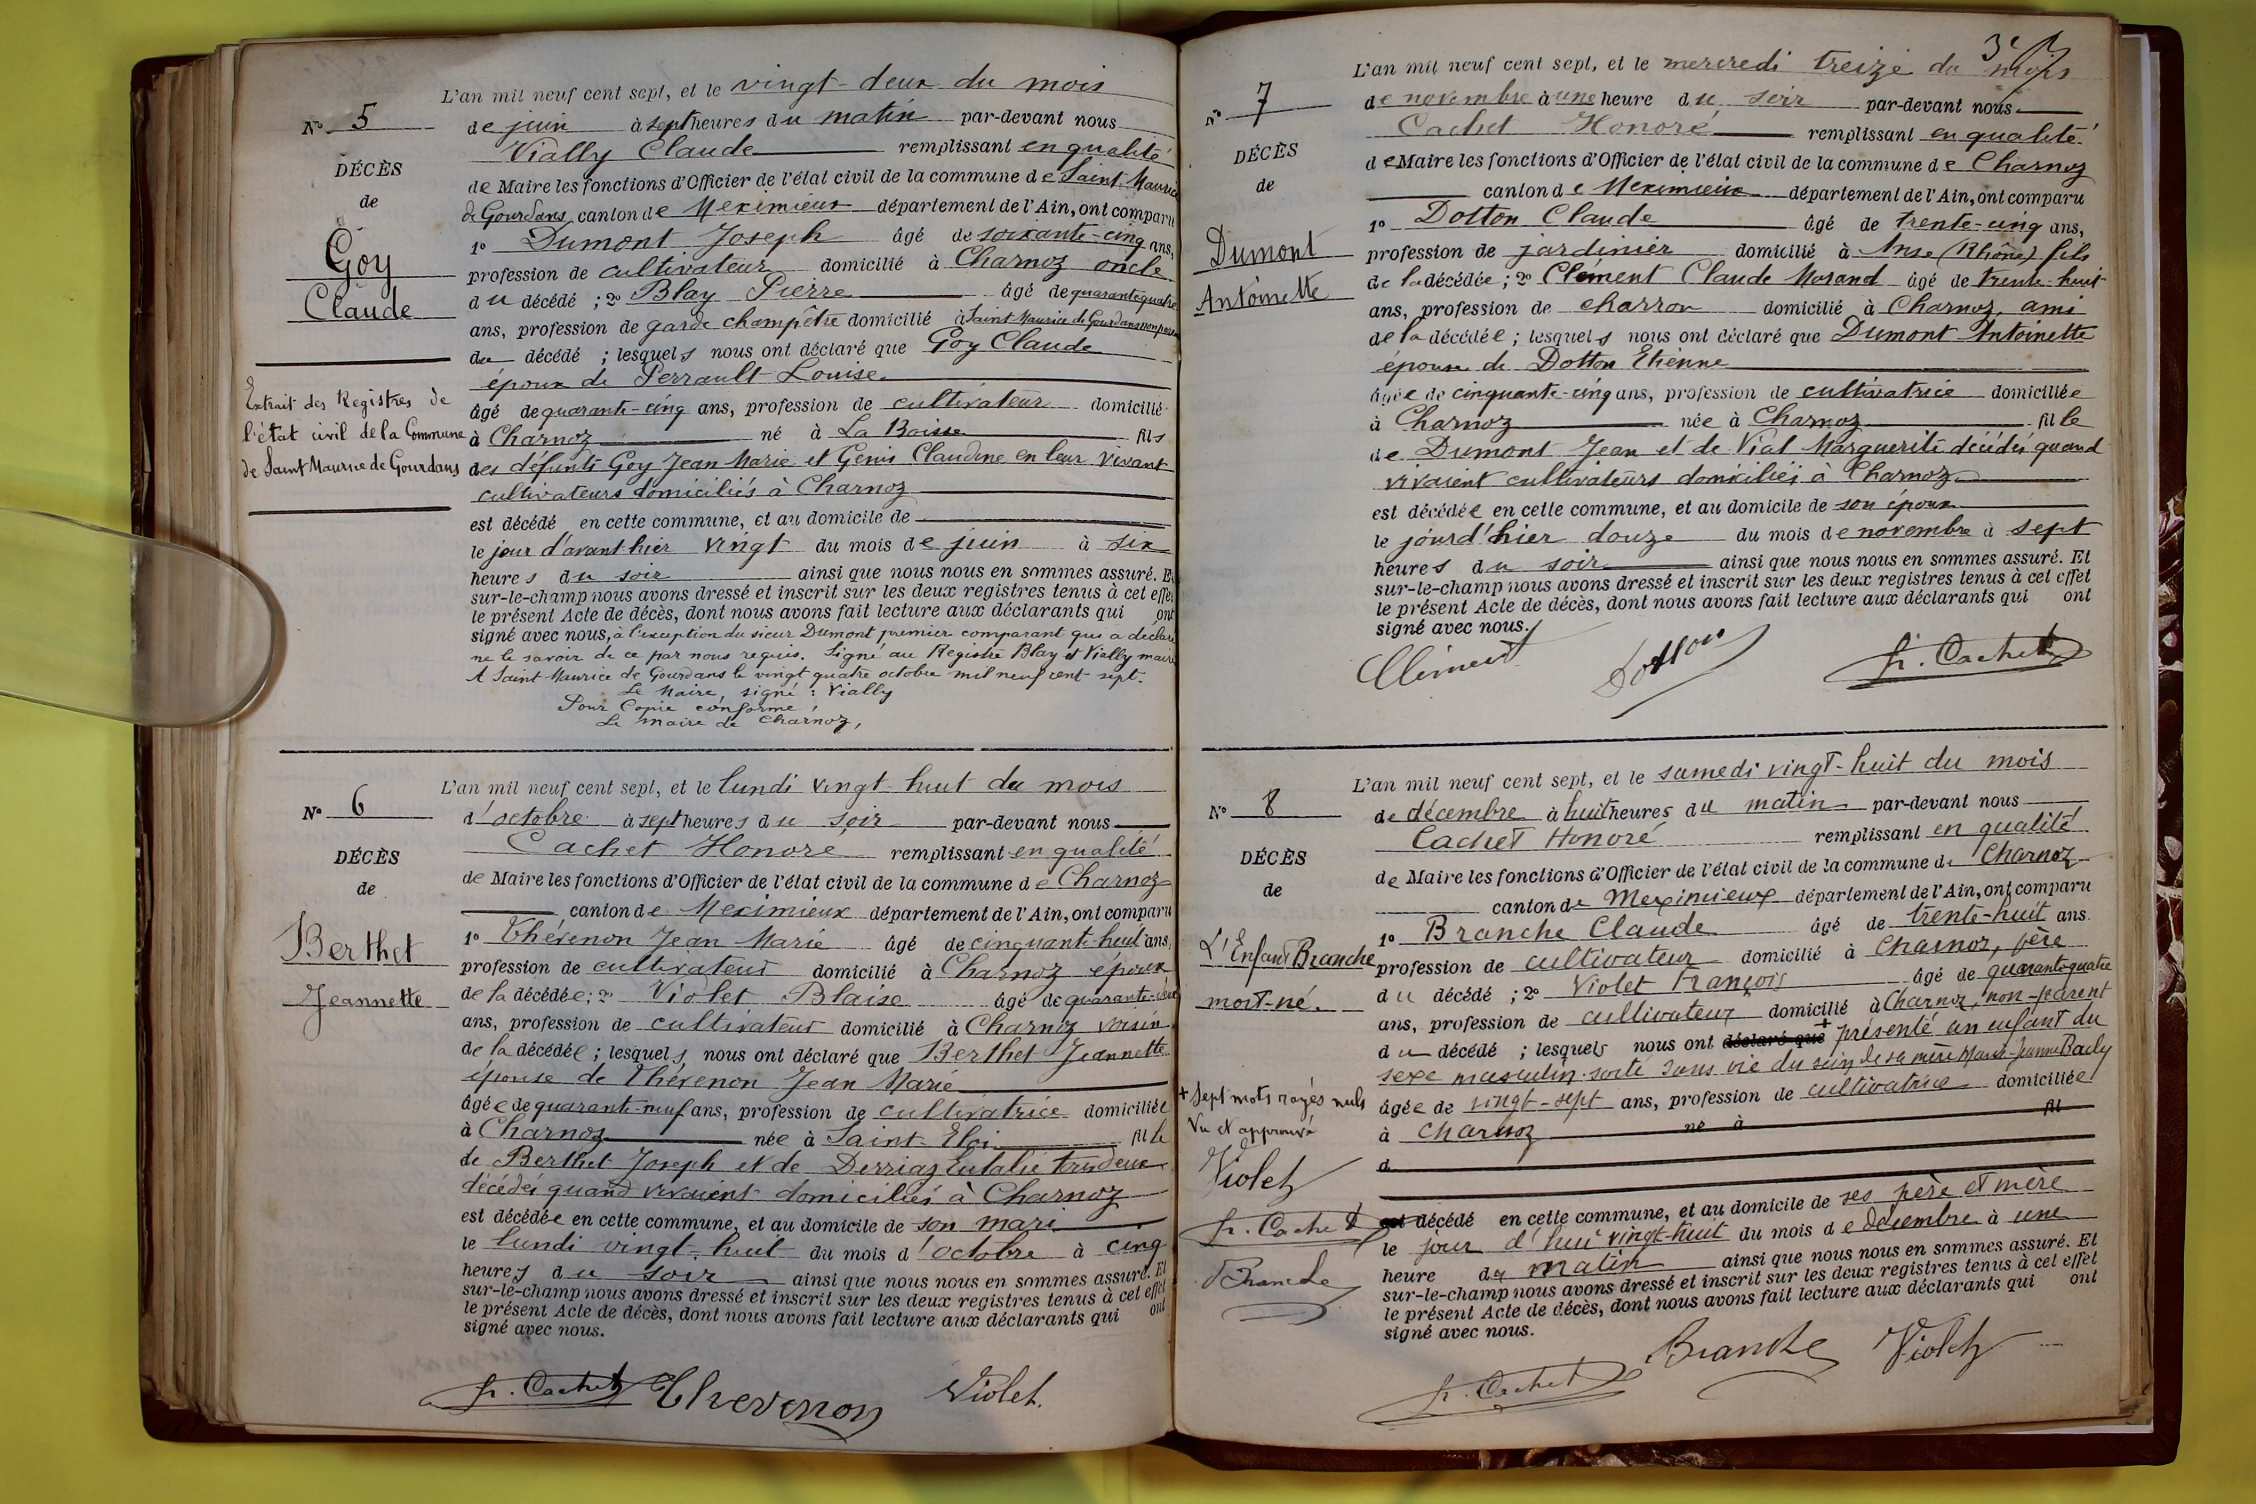 L'an mil neuf cent sept, et le vingt-deux du mois
N° 5
de juin à sept heures du matin par-devant nous
Vially Claude remplissant en qualité
DÉCÈS
de Maire les fonctions d'Officier de l'état civil de la commune de Saint Maurice
de
de Gourdans canton de Meximieux département de l'Ain, ont comparu
Goy
1° Dumont Joseph âgé de soixante-cinq ans,
profession de cultivateur domicilié à Charnoz oncle
Claude
du décédé ; 2° Blay Pierre âgé de quarante quatre
ans, profession de garde champêtre domicilié à Saint Maurice de Gourdans non parent
du décédé ; lesquels nous ont déclaré que Goy Claude
époux de Perrault Louise
Extrait des Registres de
l'état civil de la Commune
de Saint Maurice de Gourdans
âgé de quarante-cinq ans, profession de cultivateur domicilié
à Charnoz né à La Boisse fils
des défunts Goy Jean Marie et Genis Claudine en leur vivant
cultivateurs domiciliés à Charnoz
est décédé en cette commune, et au domicile de
le jour d'avant-hier vingt du mois de juin à six
heures du soir ainsi que nous nous en sommes assuré. Et
sur-le-champ nous avons dressé et inscrit sur les deux registres tenus à cet effet
le présent Acte de décès, dont nous avons fait lecture aux déclarants qui ont
signé avec nous, à l'exception du sieur Dumont premier comparant qui a déclaré
ne le savoir de ce par nous requis. Signé au Registre Blay et Vially maire
A Saint Maurice de Gourdans le vingt quatre octobre mil neuf cent sept.
Le Maire, signé : Vially
Pour Copie conforme,
Le maire de Charnoz,
L'an mil neuf cent sept, et le lundi vingt-huit du mois
N° 6
d'octobre à sept heures du soir par-devant nous
Cachet Honoré remplissant en qualité
DÉCÈS
de Maire les fonctions d'Officier de l'état civil de la commune de Charnoz
de
canton de Meximieux département de l'Ain, ont comparu
Berthet
1° Thévenon Jean Marie âgé de cinquante-huit ans,
profession de cultivateur domicilié à Charnoz époux
Jeannette
de la décédée ; 2° Violet Blaise âgé de quarante-
ans, profession de cultivateur domicilié à Charnoz voisin
de la décédée ; lesquels nous ont déclaré que Berthet Jeannette
épouse de Thévenon Jean Marie
âgée de quarante-neuf ans, profession de cultivatrice domiciliée
à Charnoz née à Saint Eloi fille
de Berthet Joseph et de Derriaz Eulalie tous deux
décédés quand vivaient domiciliés à Charnoz
est décédée en cette commune, et au domicile de son mari
le lundi vingt-huit du mois d'octobre à cinq
heures du soir ainsi que nous nous en sommes assuré. Et
sur-le-champ nous avons dressé et inscrit sur les deux registres tenus à cet effet
le présent Acte de décès, dont nous avons fait lecture aux déclarants qui ont
signé avec nous.
h. Cachet Thevenon Violet.
L'an mil neuf cent sept, et le mercredi treize du mois
N° 7
de novembre à une heure du soir par-devant nous
Cachet Honoré remplissant en qualité
DÉCÈS
de Maire les fonctions d'Officier de l'état civil de la commune de Charnoz
de
canton de Meximieux département de l'Ain, ont comparu
1° Dotton Claude âgé de trente-cinq ans,
Dumont
profession de jardinier domicilié à Anse (Rhône) fils
Antoinette
de la décédée ; 2° Clément Claude Morand âgé de trente-huit
ans, profession de charron domicilié à Charnoz, ami
de la décédée ; lesquels nous ont déclaré que Dumont Antoinette
épouse de Dotton Etienne
âgée de cinquante-cinq ans, profession de cultivatrice domiciliée
à Charnoz née à Charnoz fille
de Dumont Jean et de Vial Marguerite décédés quand
vivaient cultivateurs domiciliés à Charnoz
est décédée en cette commune, et au domicile de son époux
le jourd'hier douze du mois de novembre à sept
heures du soir ainsi que nous nous en sommes assuré. Et
sur-le-champ nous avons dressé et inscrit sur les deux registres tenus à cet effet
le présent Acte de décès, dont nous avons fait lecture aux déclarants qui ont
signé avec nous.
Clément Dotton h. Cachet
L'an mil neuf cent sept, et le samedi vingt-huit du mois
N° 8
de décembre à huit heures du matin par-devant nous
Cachet Honoré remplissant en qualité
DÉCÈS
de Maire les fonctions d'Officier de l'état civil de la commune de Charnoz
de
canton de Meximieux département de l'Ain, ont comparu
1° Branche Claude âgé de trente-huit ans
L'Enfant Branche
profession de cultivateur domicilié à Charnoz, père
mort-né.
du décédé ; 2° Violet François âgé de quarante-quatre
ans, profession de cultivateur domicilié à Charnoz, non-parent
du décédé ; lesquels nous ont déclaré que + présenté un enfant du
sexe masculin sorti sans vie du sein de sa mère Marie-Jeanne Bailly
+ Sept mots rayés nuls
Vu et approuvé
Violet
h. Cachet
Branche
âgée de vingt-sept ans, profession de cultivatrice domiciliée
à Charnoz né à fil
d
est décédé en cette commune, et au domicile de ses père et mère
le jour d'hui vingt-huit du mois de décembre à une
heure du matin ainsi que nous nous en sommes assuré. Et
sur-le-champ nous avons dressé et inscrit sur les deux registres tenus à cet effet
le présent Acte de décès, dont nous avons fait lecture aux déclarants qui ont
signé avec nous.
h. Cachet Branche Violet